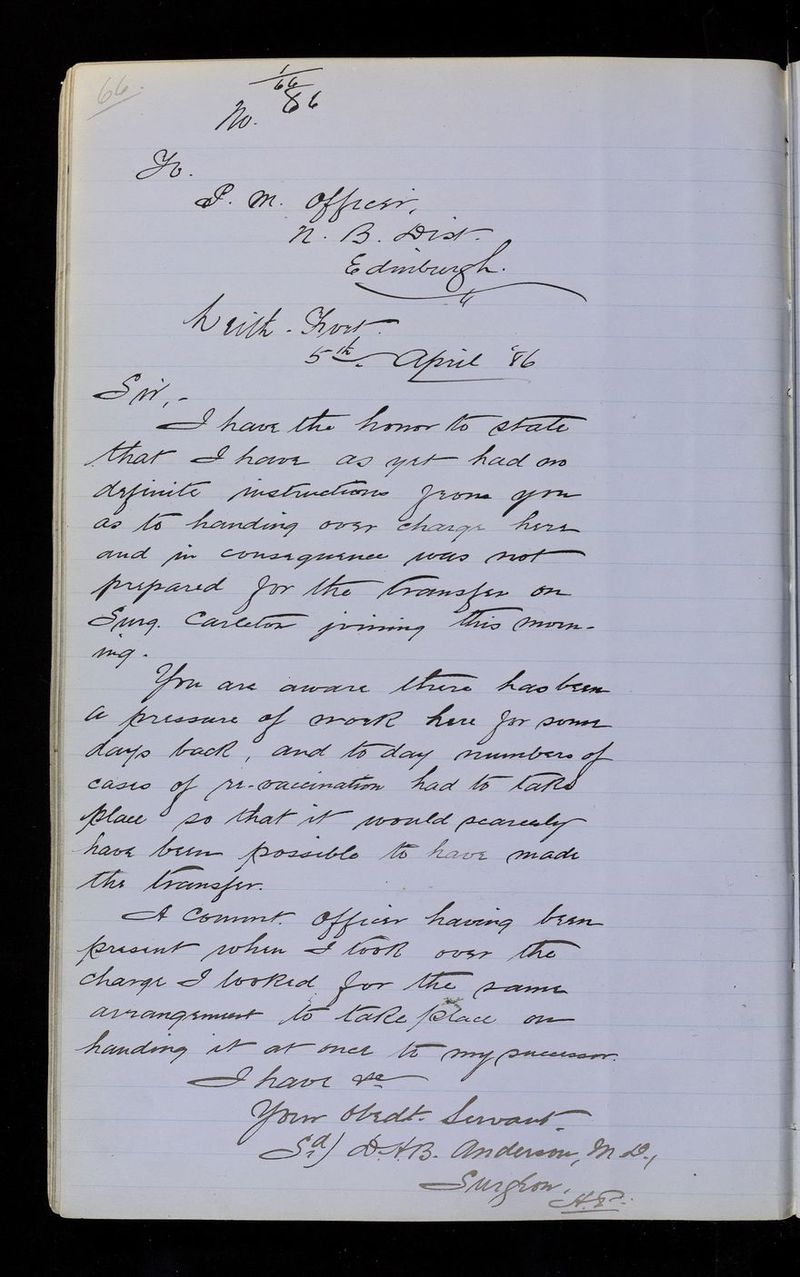 66.
1/66
No. 86
To.
P. M. Officer,
N. B. Dist.
Edinburgh.
Leith - Fort
5th. April '86
Sir, -
I have the honor to state
that I have as yet had no
definite instructions from you
as to handing over charge here
and in consequence was not
prepared for the transfer on
Surg. Carleton joining this morn-
ing.
You are aware there has been
a pressure of work here for some
days back, and to day numbers of
cases of re-vaccination had to take
place so that it would scarcely
have been possible to have made
the transfer.
A Commt. Officer having been
present when I took over the
charge I looked for the same
arrangement to take place on
handing it at once to my successor.
I have &c
Your Obedt. Servant.
Sd) D.H.B. Anderson, M.D.,
Surgeon,